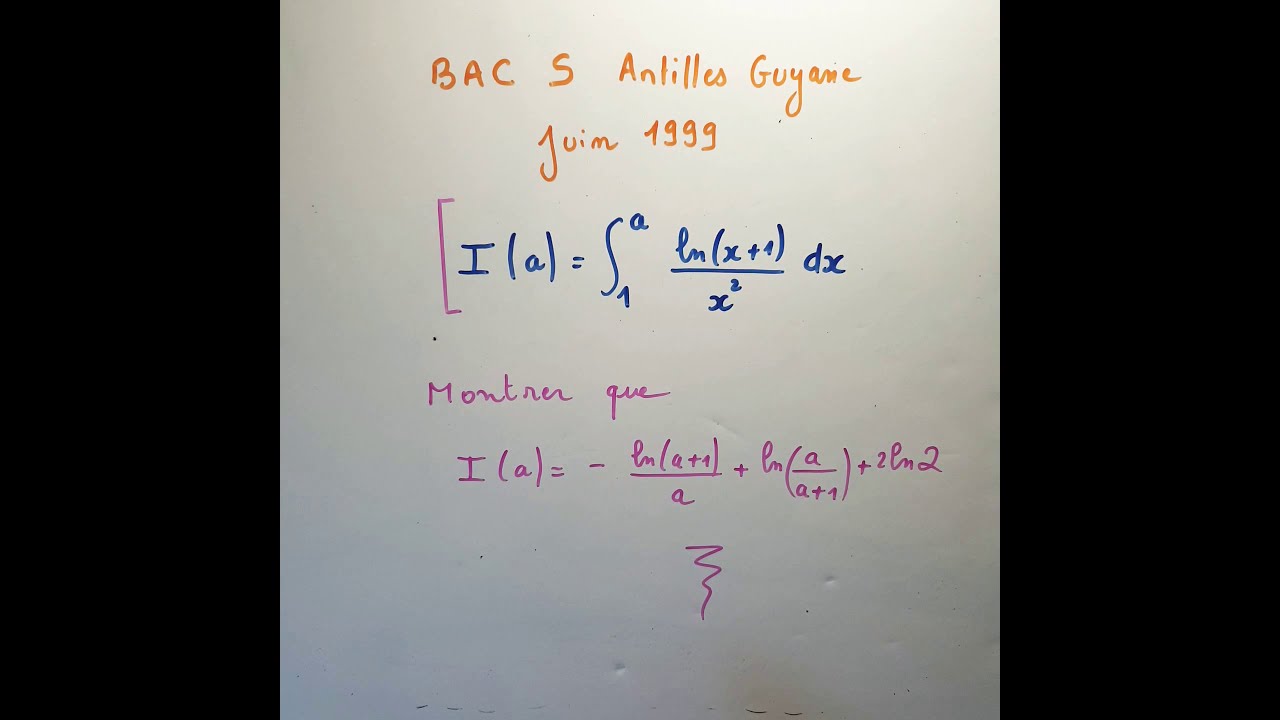 BAC S Antilles Guyane
Juin 1999
I(a) = ∫₁ᵃ ln(x+1)/x² dx
Montrer que
I(a) = - ln(a+1)/a + ln(a/(a+1)) + 2ln2